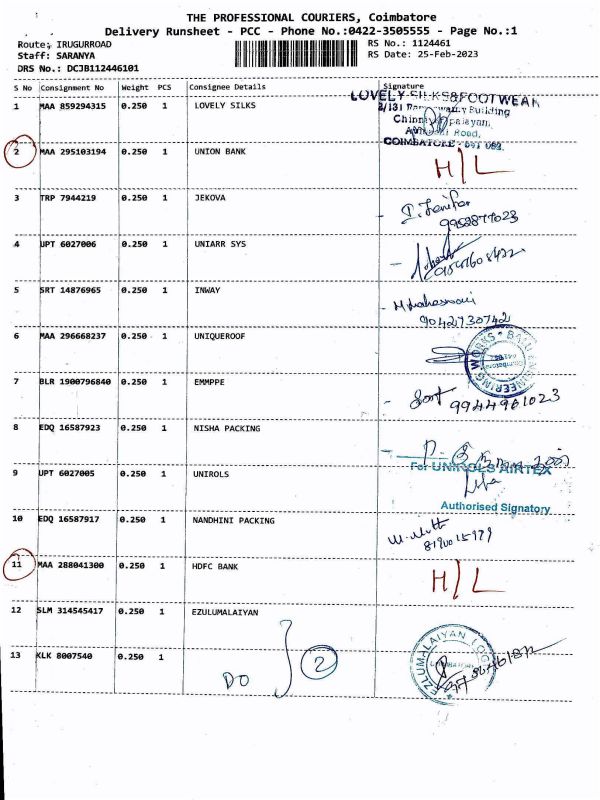 THE PROFESSIONAL COURIERS, Coimbatore
Delivery Runsheet - PCC - Phone No.:0422-3505555 - Page No.:1
Route: IRUGURROAD RS No.: 1124461
Staff: SARANYA RS Date: 25-Feb-2023
DRS No.: DCJB112446101
S No Consignment No Weight PCS Consignee Details Signature
1 MAA 859294315 0.250 1 LOVELY SILKS LOVELY SILKS&FOOTWEAR
Building
Road,
COIMBATORE
2 MAA 295103194 0.250 1 UNION BANK H/L
3 TRP 7944219 0.250 1 JEKOVA
9952877023
4 UPT 6027006 0.250 1 UNIARR SYS
5 SRT 14876965 0.250 1 INWAY
9042730742
6 MAA 296668237 0.250 1 UNIQUEROOF
7 BLR 1900796840 0.250 1 EMMPPE
9944961023
8 EDQ 16587923 0.250 1 NISHA PACKING
9 UPT 6027005 0.250 1 UNIROLS For UNIROLS AIRTEX
Authorised Signatory
10 EDQ 16587917 0.250 1 NANDHINI PACKING
11 MAA 288041300 0.250 1 HDFC BANK H/L
12 SLM 314545417 0.250 1 EZULUMALAIYAN
13 KLK 8007540 0.250 1
DO 2